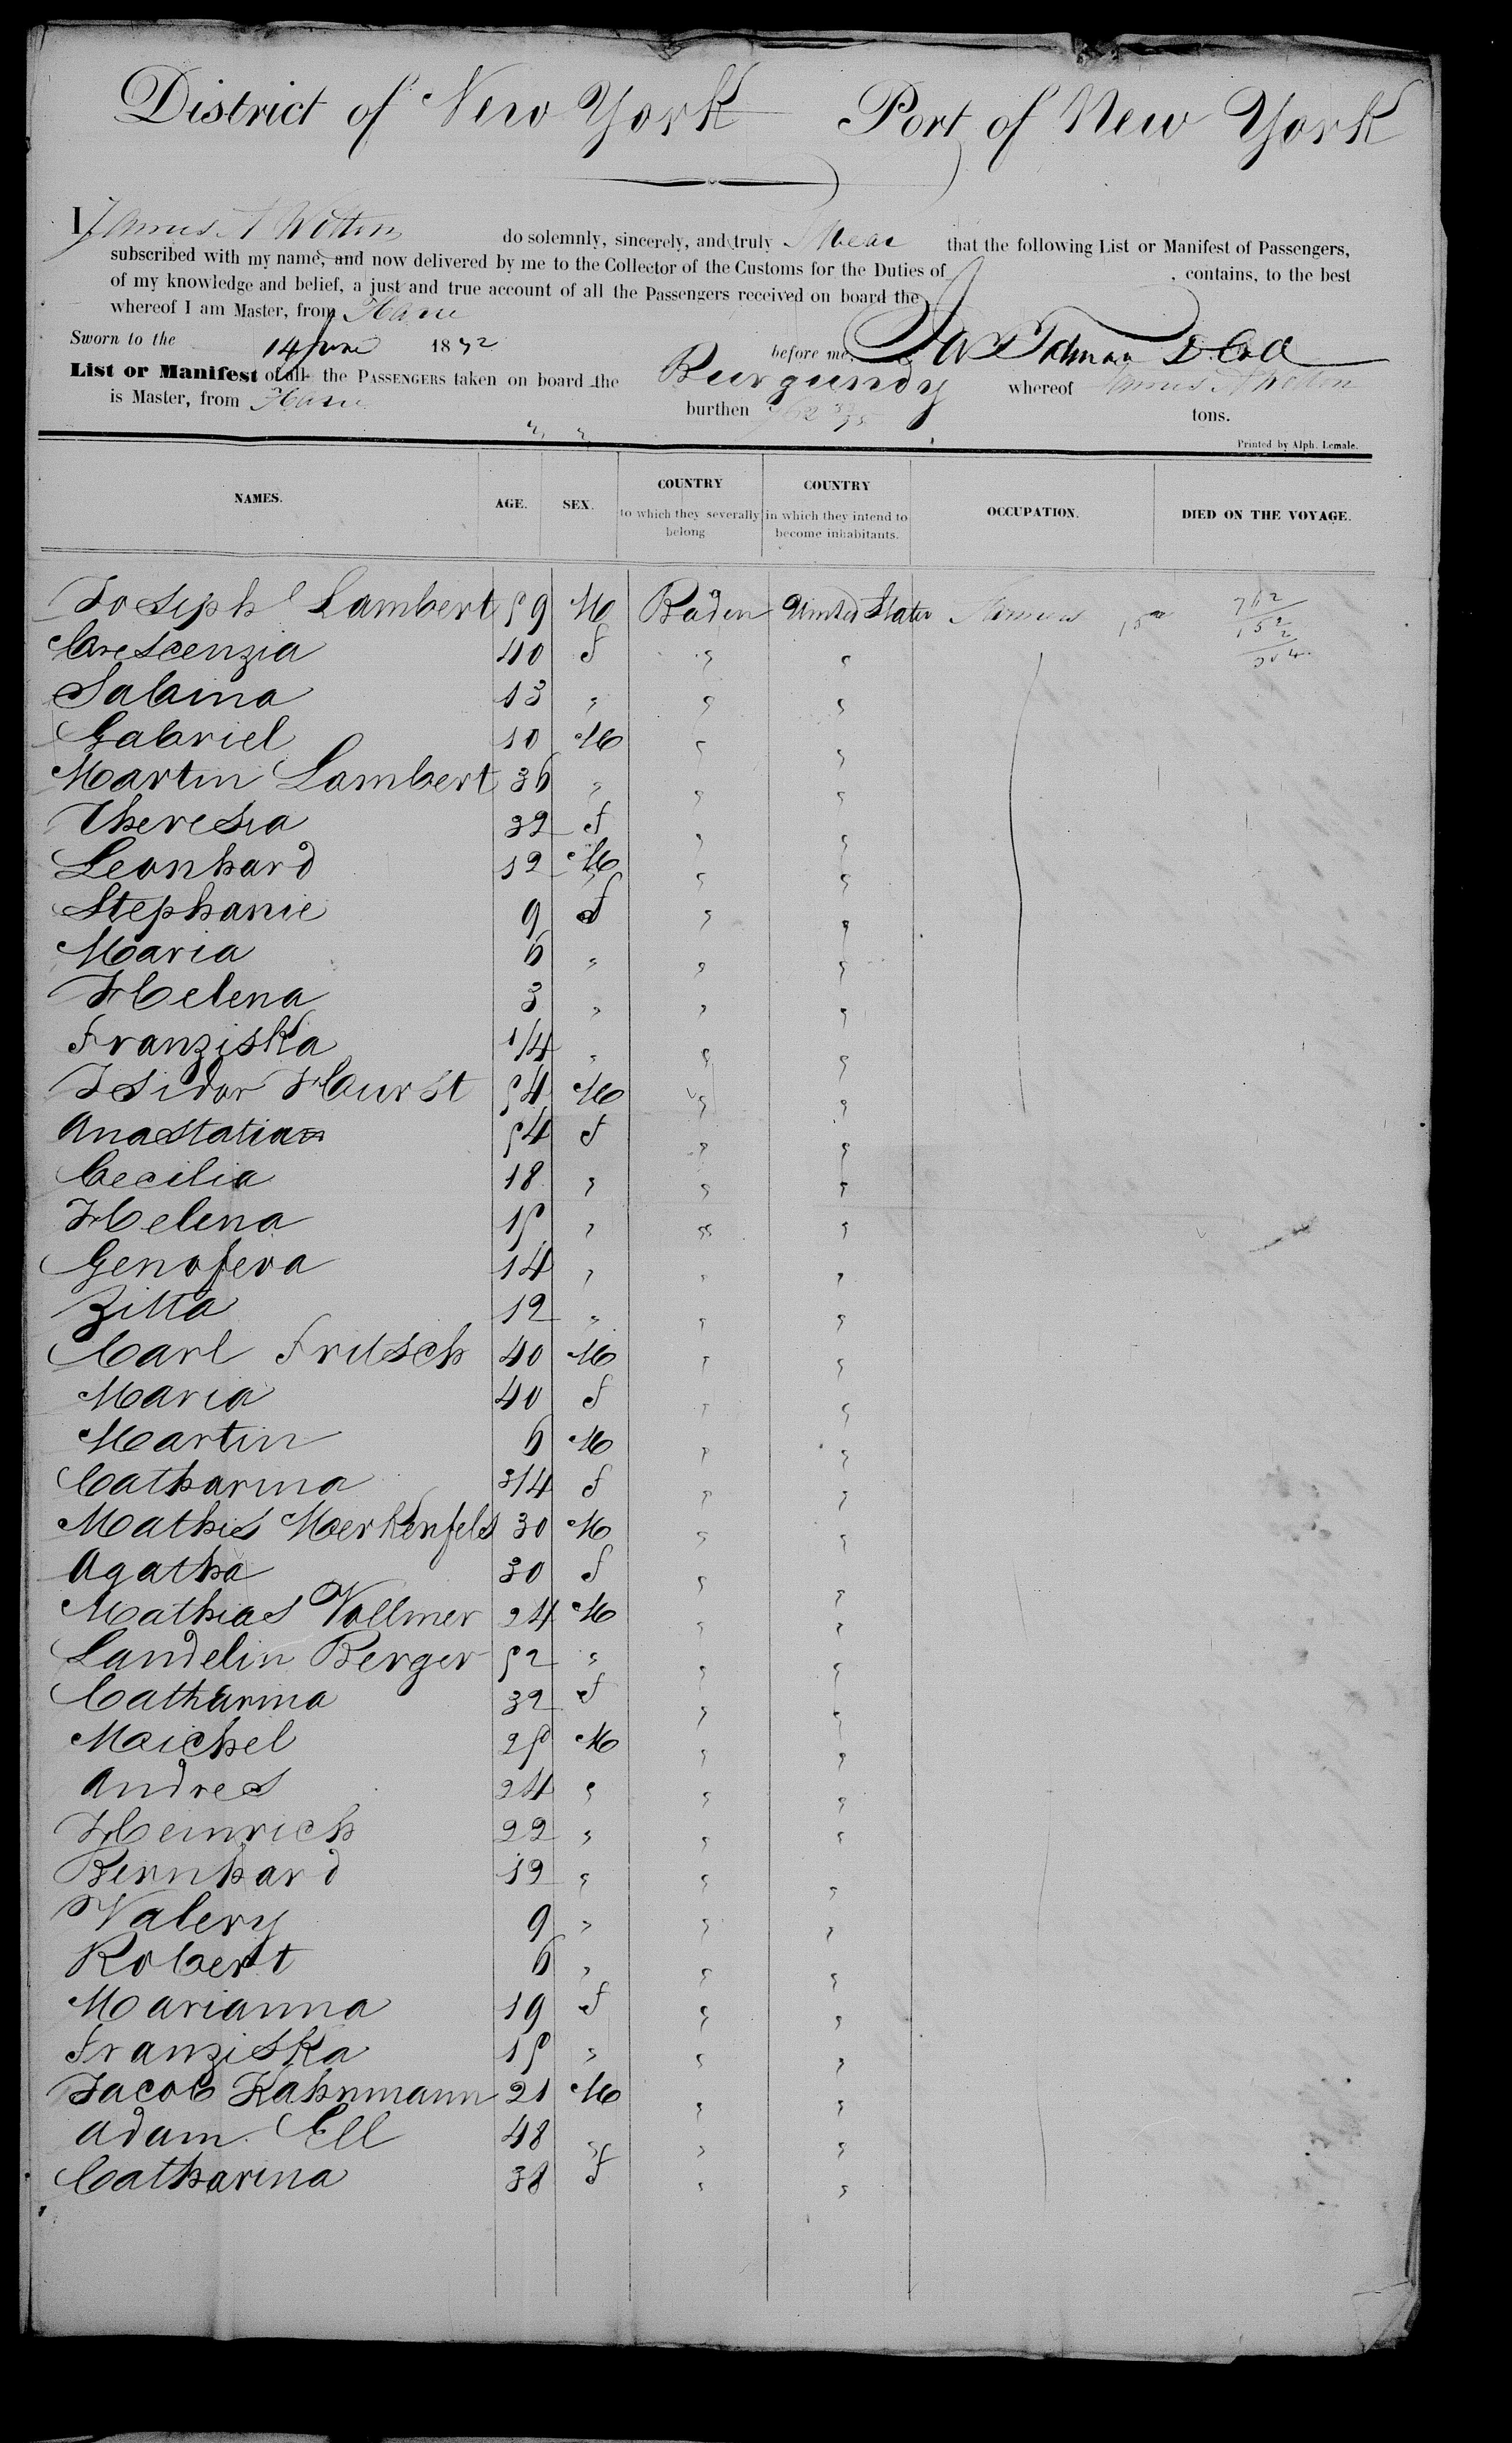 District of New York Port of New York
I James A Wotton do solemnly, sincerely, and truly Swear that the following List or Manifest of Passengers,
subscribed with my name, and now delivered by me to the Collector of the Customs for the Duties of , contains, to the best
of my knowledge and belief, a just and true account of all the Passengers received on board the
whereof I am Master, from Havre
Sworn to the 14 June 1852 before me
List or Manifest of all the PASSENGERS taken on board the Burgundy whereof James A Wotton
is Master, from Havre burthen tons.
Printed by Alph. Lemale.
NAMES. AGE. SEX. COUNTRY to which they severally belong COUNTRY in which they intend to become inhabitants. OCCUPATION. DIED ON THE VOYAGE.
Joseph Lambert 59 M Baden United States Farmers 762
152
2
304
Crescenzia 40 f " "
Sabina 13 " " "
Gabriel 10 M " "
Martin Lambert 36 " " "
Theresia 32 f " "
Leonhard 12 M " "
Stephanie 9 f " "
Maria 6 " " "
Helena 3 " " "
Franziska 1/4 " " "
Isidor Hurst 54 M " "
Anastatia 54 f " "
Cecilia 18 " " "
Helena 15 " " "
Genofeva 14 " " "
Zitta 12 " " "
Carl Fritsch 40 M " "
Maria 40 f " "
Martin 6 M " "
Catharina 3/4 f " "
Mathis Merkenfels 30 M " "
Agatha 30 f " "
Mathias Vollmer 24 M " "
Landelin Berger 52 " " "
Catharina 32 f " "
Maichel 25 M " "
Andres 24 " " "
Heinrich 22 " " "
Bernhard 12 " " "
Valery 9 " " "
Robert 6 " " "
Marianna 19 f " "
Franziska 15 " " "
Jacob Kahnmann 21 M " "
Adam Ell 48 " " "
Catharina 38 f " "